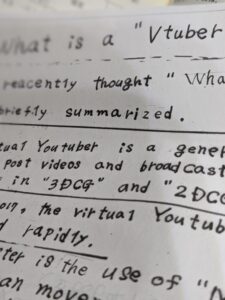 What is a "Vtuber
reacently thought " Wha
briefly summarized.
tual Youtuber is a gener
post videos and broadcast
in "3DCG" and "2DCG
2017, the virtual Youtub
d rapidly.
ter is the use of "
an move